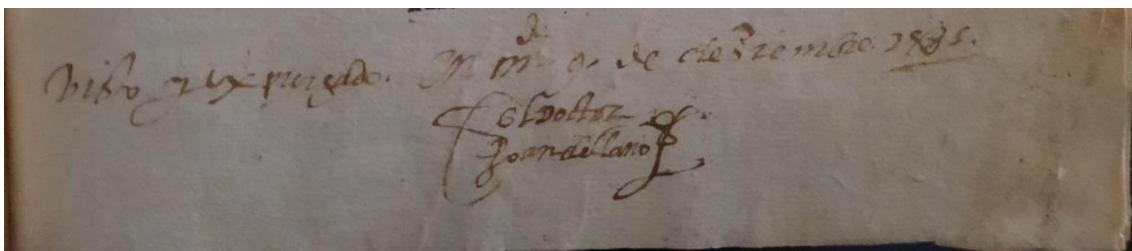 Visto y expurgado. En md. 9 de deziembre 1585.
El Doctor
Joan de llano